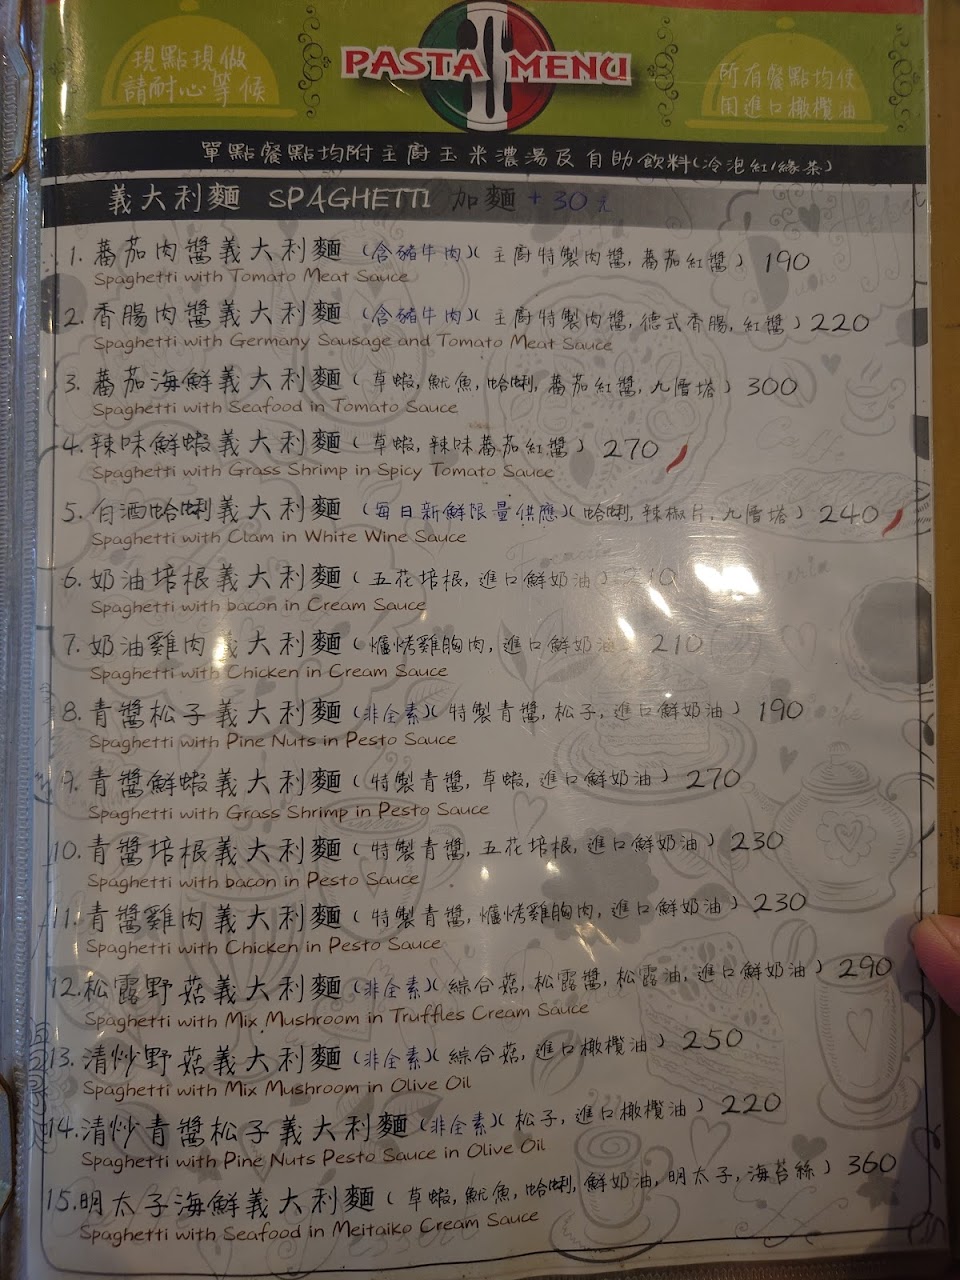 現點現做
請耐心等候
PASTA MENU
所有餐點均使
用進口橄欖油
單點餐點均附主廚玉米濃湯及自助飲料(冷泡紅/綠茶)
義大利麵 SPAGHETTI 加麵 +30元
1. 蕃茄肉醬義大利麵 (含豬牛肉)(主廚特製肉醬, 蕃茄紅醬) 190
Spaghetti with Tomato Meat Sauce
2. 香腸肉醬義大利麵 (含豬牛肉)(主廚特製肉醬, 德式香腸, 紅醬) 220
Spaghetti with Germany Sausage and Tomato Meat Sauce
3. 蕃茄海鮮義大利麵 (草蝦, 魷魚, 蛤蜊, 蕃茄紅醬, 九層塔) 300
Spaghetti with Seafood in Tomato Sauce
4. 辣味鮮蝦義大利麵 (草蝦, 辣味蕃茄紅醬) 270
Spaghetti with Grass Shrimp in Spicy Tomato Sauce
5. 白酒蛤蜊義大利麵 (每日新鮮限量供應)(蛤蜊, 辣椒片, 九層塔) 240
Spaghetti with Clam in White Wine Sauce
6. 奶油培根義大利麵 (五花培根, 進口鮮奶油) 210
Spaghetti with bacon in Cream Sauce
7. 奶油雞肉義大利麵 (爐烤雞胸肉, 進口鮮奶油) 210
Spaghetti with Chicken in Cream Sauce
8. 青醬松子義大利麵 (非全素)(特製青醬, 松子, 進口鮮奶油) 190
Spaghetti with Pine Nuts in Pesto Sauce
9. 青醬鮮蝦義大利麵 (特製青醬, 草蝦, 進口鮮奶油) 270
Spaghetti with Grass Shrimp in Pesto Sauce
10. 青醬培根義大利麵 (特製青醬, 五花培根, 進口鮮奶油) 230
Spaghetti with bacon in Pesto Sauce
11. 青醬雞肉義大利麵 (特製青醬, 爐烤雞胸肉, 進口鮮奶油) 230
Spaghetti with Chicken in Pesto Sauce
12. 松露野菇義大利麵 (非全素)(綜合菇, 松露醬, 松露油, 進口鮮奶油) 290
Spaghetti with Mix Mushroom in Truffles Cream Sauce
13. 清炒野菇義大利麵 (非全素)(綜合菇, 進口橄欖油) 250
Spaghetti with Mix Mushroom in Olive Oil
14. 清炒青醬松子義大利麵 (非全素)(松子, 進口橄欖油) 220
Spaghetti with Pine Nuts Pesto Sauce in Olive Oil
15. 明太子海鮮義大利麵 (草蝦, 魷魚, 蛤蜊, 鮮奶油, 明太子, 海苔絲) 360
Spaghetti with Seafood in Meitaiko Cream Sauce